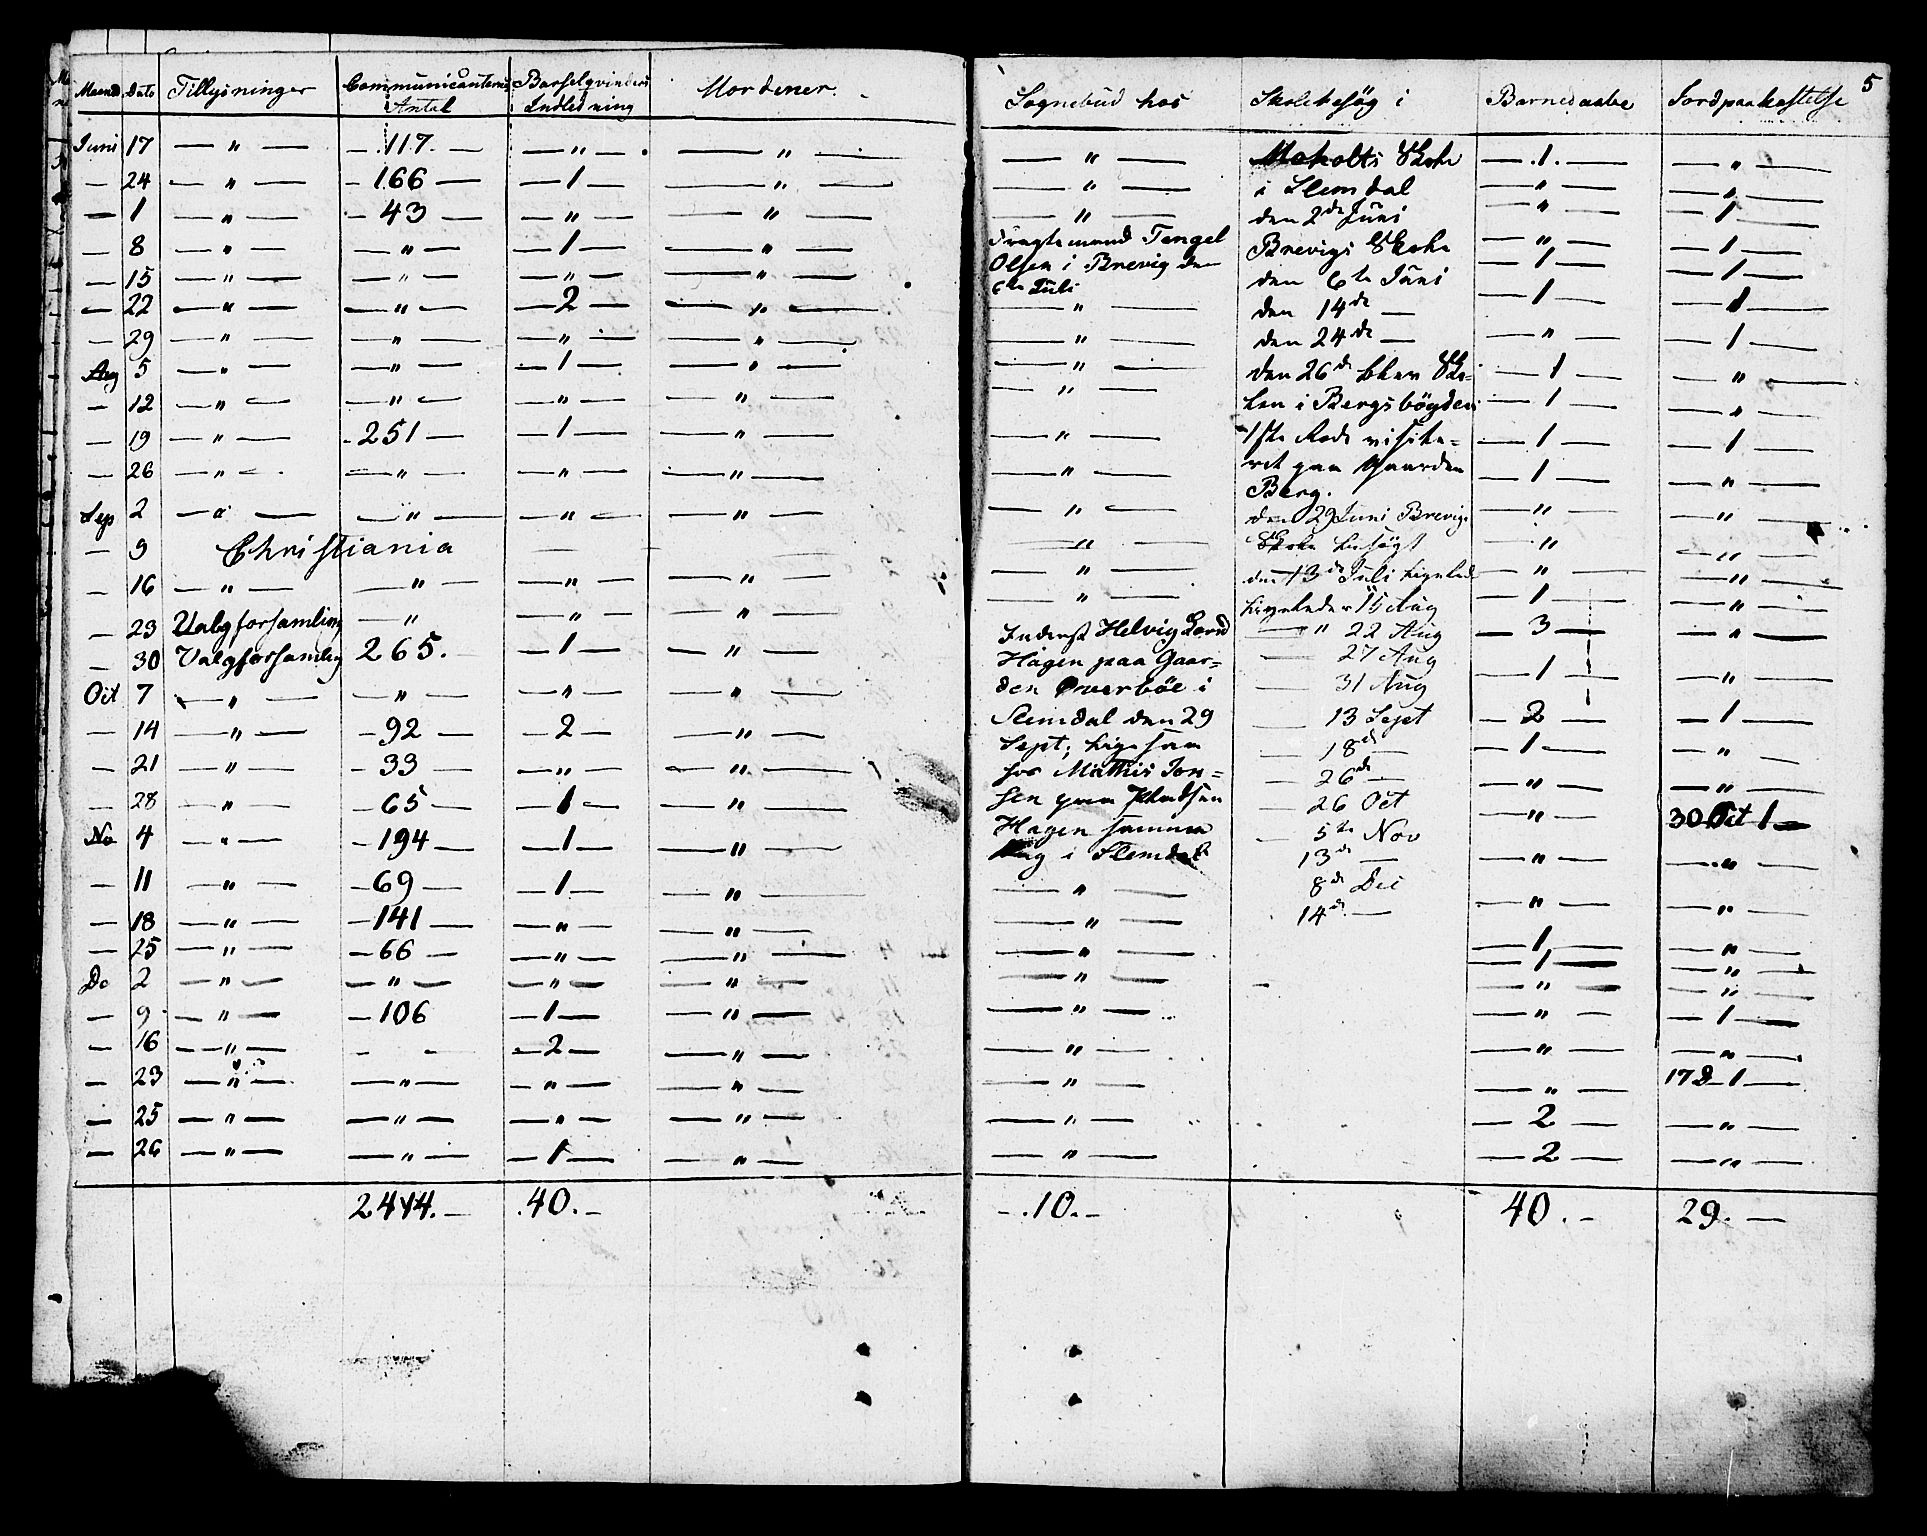 5
Maaned Dato Tillysninger Communicanternes Antal Barselqvinders Indledning
Juni 17 — " — — 117. — — " — — " —
— 24 — " — — 166 — — 1 — — " —
— 1 — " — — 43 — — " — — " —
— 8 — " — — " — — 1 — — " —
— 15 — " — — " — — " — — " —
— 22 — " — — " — — 2 — — " —
— 29 — " — — " — — " — — " —
Aug 5 — " — — " — — 1 — — " —
— 12 — " — — " — — " — — " —
— 19 — " — — 251 — — 1 — — " —
— 26 — " — — " — — " — — " —
Sep 2 — " — — " — — " — — " —
— 9 Christiania — —
— 16 — " — — " — — " — — " —
— 23 Valgforsamling — " — — " — — " —
— 30 Valgforsamling 265. — 1 — — " —
Oct 7 — " — — " — — " — — " —
— 14 — " — — 92 — — 2 — — " —
— 21 — " — — 33 — — " — — " —
— 28 — " — — 65 — — 1 — — " —
No 4 — " — — 194 — — 1 — — " —
— 11 — " — — 69 — — 1 — — " —
— 18 — " — — 141 — — " — — " —
— 25 — " — — 66 — — " — — " —
De 2 — " — — " — — " — — " —
— 9 — " — — 106 — 1 — — " —
— 16 — " — — — — 2 — — " —
— 23 — " — — " — — " — — " —
— 25 — " — — " — — " — — " —
— 26 — " — — " — — 1 — — " —
40. —
Sognebud hos
— " —
— " —
— " —
Tengel
Olsen i Brevig den
6te Juli
— " —
— " —
— " —
— " —
— " —
— " —
— " —
— " —
— " —
— " —
Inderst Helvig
Hagen paa Gaar=
den Øverböe i
Slemdal den 29
Sept; ligesom
hos Mathis Jon=
sen paa
Hagen samme
Dag i Slemdal
— " —
— " —
— " —
— " —
— " —
— " —
— " —
— " —
— " —
— .10. —
Skolebesög i
Skole
i Slemdal
den 2de Juni
Brevigs Skole
den 6te Juni
den 14de
den 24de —
den 26de blev Sko=
len i Bergsbögden
1ste Rode visite=
ret paa Gaarden
Berg.
den 29 Juni Brevigs
Skole besögt
den 13de Juli ligeled
ligeledes 15 Aug
— " 22 Aug
— 27 Aug
— 31 Aug
— 13 Sept
— 18de —
— 26de —
— 26 Oct
— 5te Nov
13de —
8de Dec
14de —
Barnedaabe
— .1. —
— " —
— " —
— " —
— 1 —
— 1 —
— " —
— 1 —
— 1 —
— 1 —
— 1 —
— " —
— " —
— " —
— 1 —
— 3 —
— 1 —
— 2 —
— 1 —
— " —
— " —
— " —
— " —
— 1 —
— 1 —
— " —
— " —
— " —
— " —
— 2 —
— 2 —
40. —
Jordpaakastelse
— " —
— " —
— 1 —
— 1 —
— 1 —
— 1 —
— 1 —
— " —
— " —
— 1 —
— " —
— " —
— " —
— " —
— " —
— " —
— " —
— 1 —
— " —
— " —
30 Oct 1 —
— " —
— " —
— " —
— " —
— " —
— 1 —
— " —
17 D 1 —
— " —
— " —
29. —